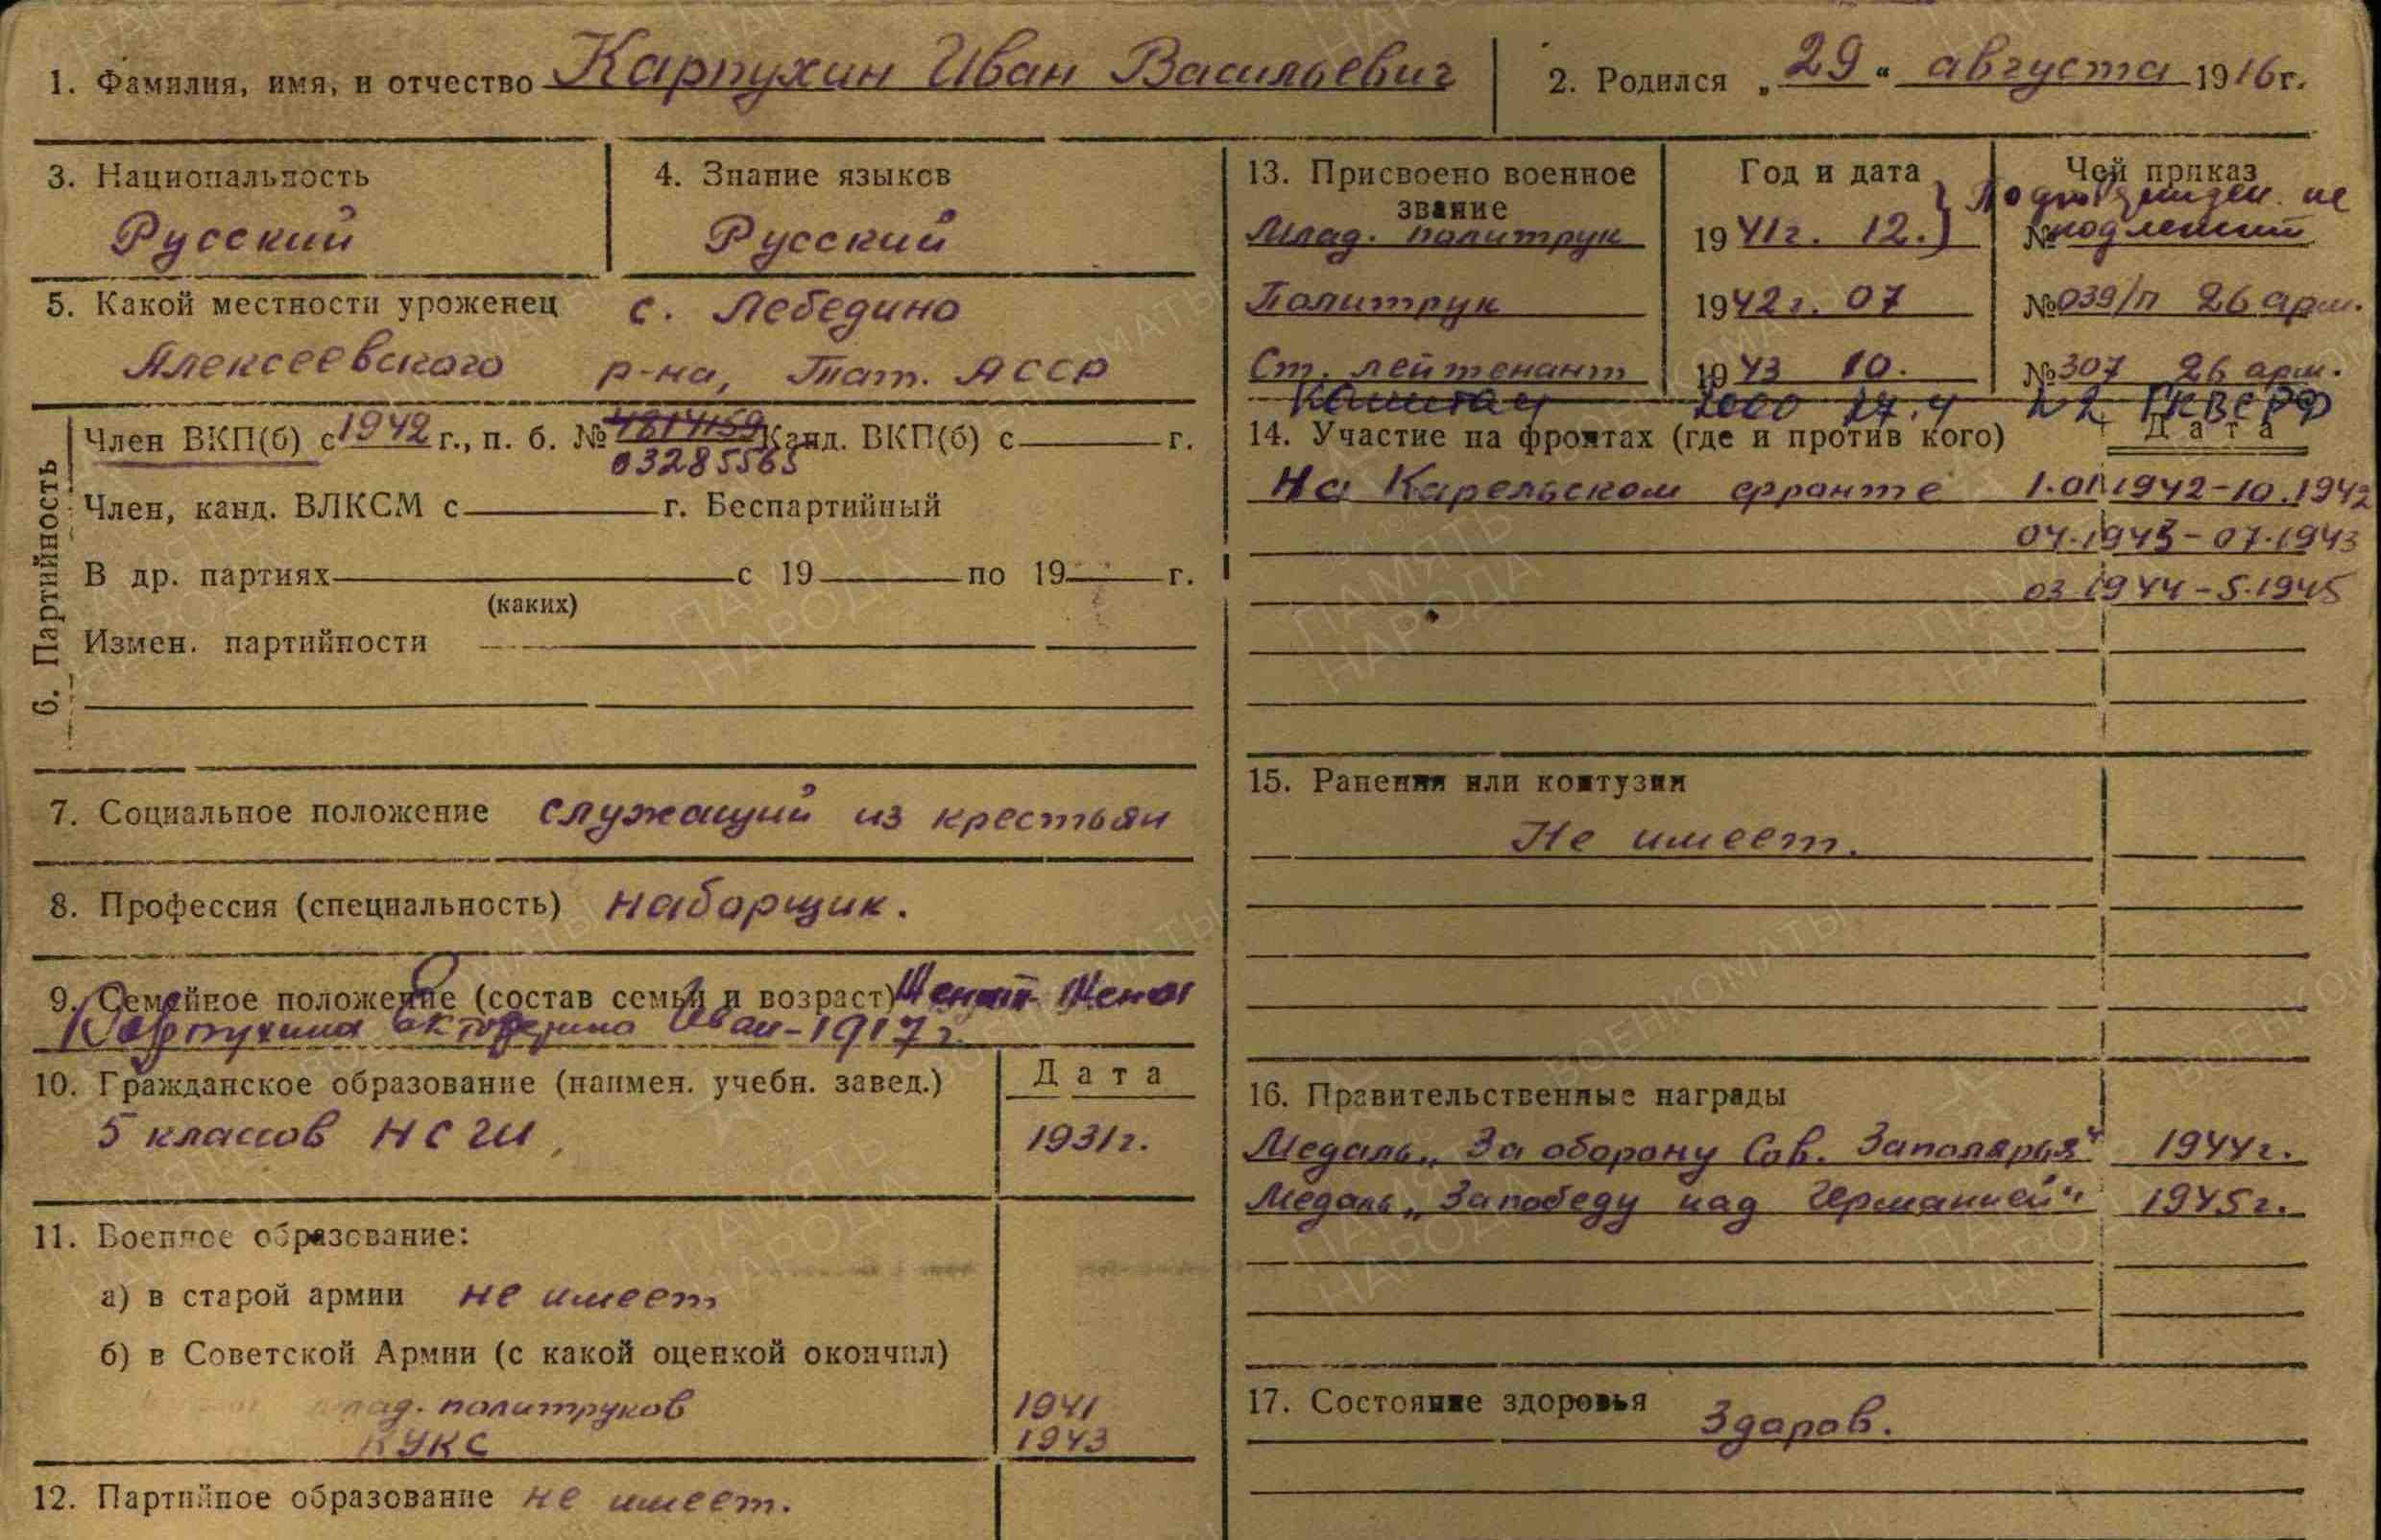 1. Фамилия, имя, и отчество Карпухин Иван Васильевич
2. Родился „29“ августа 1916 г.
3. Национальность
Русский
4. Знание языков
Русский
5. Какой местности уроженец с. Лебедино
Алексеевского р-на, Тат. АССР
6. Партийность
Член ВКП(б) с 1942 г., п. б. № 4814159 Канд. ВКП(б) с г.
03285565
Член, канд. ВЛКСМ с г. Беспартийный
В др. партиях с 19 по 19 г.
(каких)
Измен. партийности
7. Социальное положение служащий из крестьян
8. Профессия (специальность) наборщик.
9. Семейное положение (состав семьи и возраст) Женат Жена
Карпухина Иван-1917 г.
10. Гражданское образование (наимен. учебн. завед.) Дата
5 классов НСШ, 1931г.
11. Военное образование:
а) в старой армии не имеет
б) в Советской Армии (с какой оценкой окончил)
политруков 1941
КУКС 1943
12. Партийное образование не имеет.
13. Присвоено военное звание Год и дата Чей приказ
Млад. политрук 1941г. 12.) не
№
Политрук 1942г. 07 №039/п 26 арм.
Ст. лейтенант 1943 10. №307 26 арм.
Капитан 2000 27.4 №2 ГКВС РФ
14. Участие на фронтах (где и против кого) Дата
На Карельском фронте 1.01.1942-10.1942
04.1943-07.1943
03.1944-5.1945
15. Ранения или контузии
Не имеет.
16. Правительственные награды
Медаль „За оборону Сов. Заполярья“ 1944г.
Медаль „За победу над Германией“ 1945г.
17. Состояние здоровья Здоров.
ПАМЯТЬ НАРОДА
ВОЕНКОМАТЫ